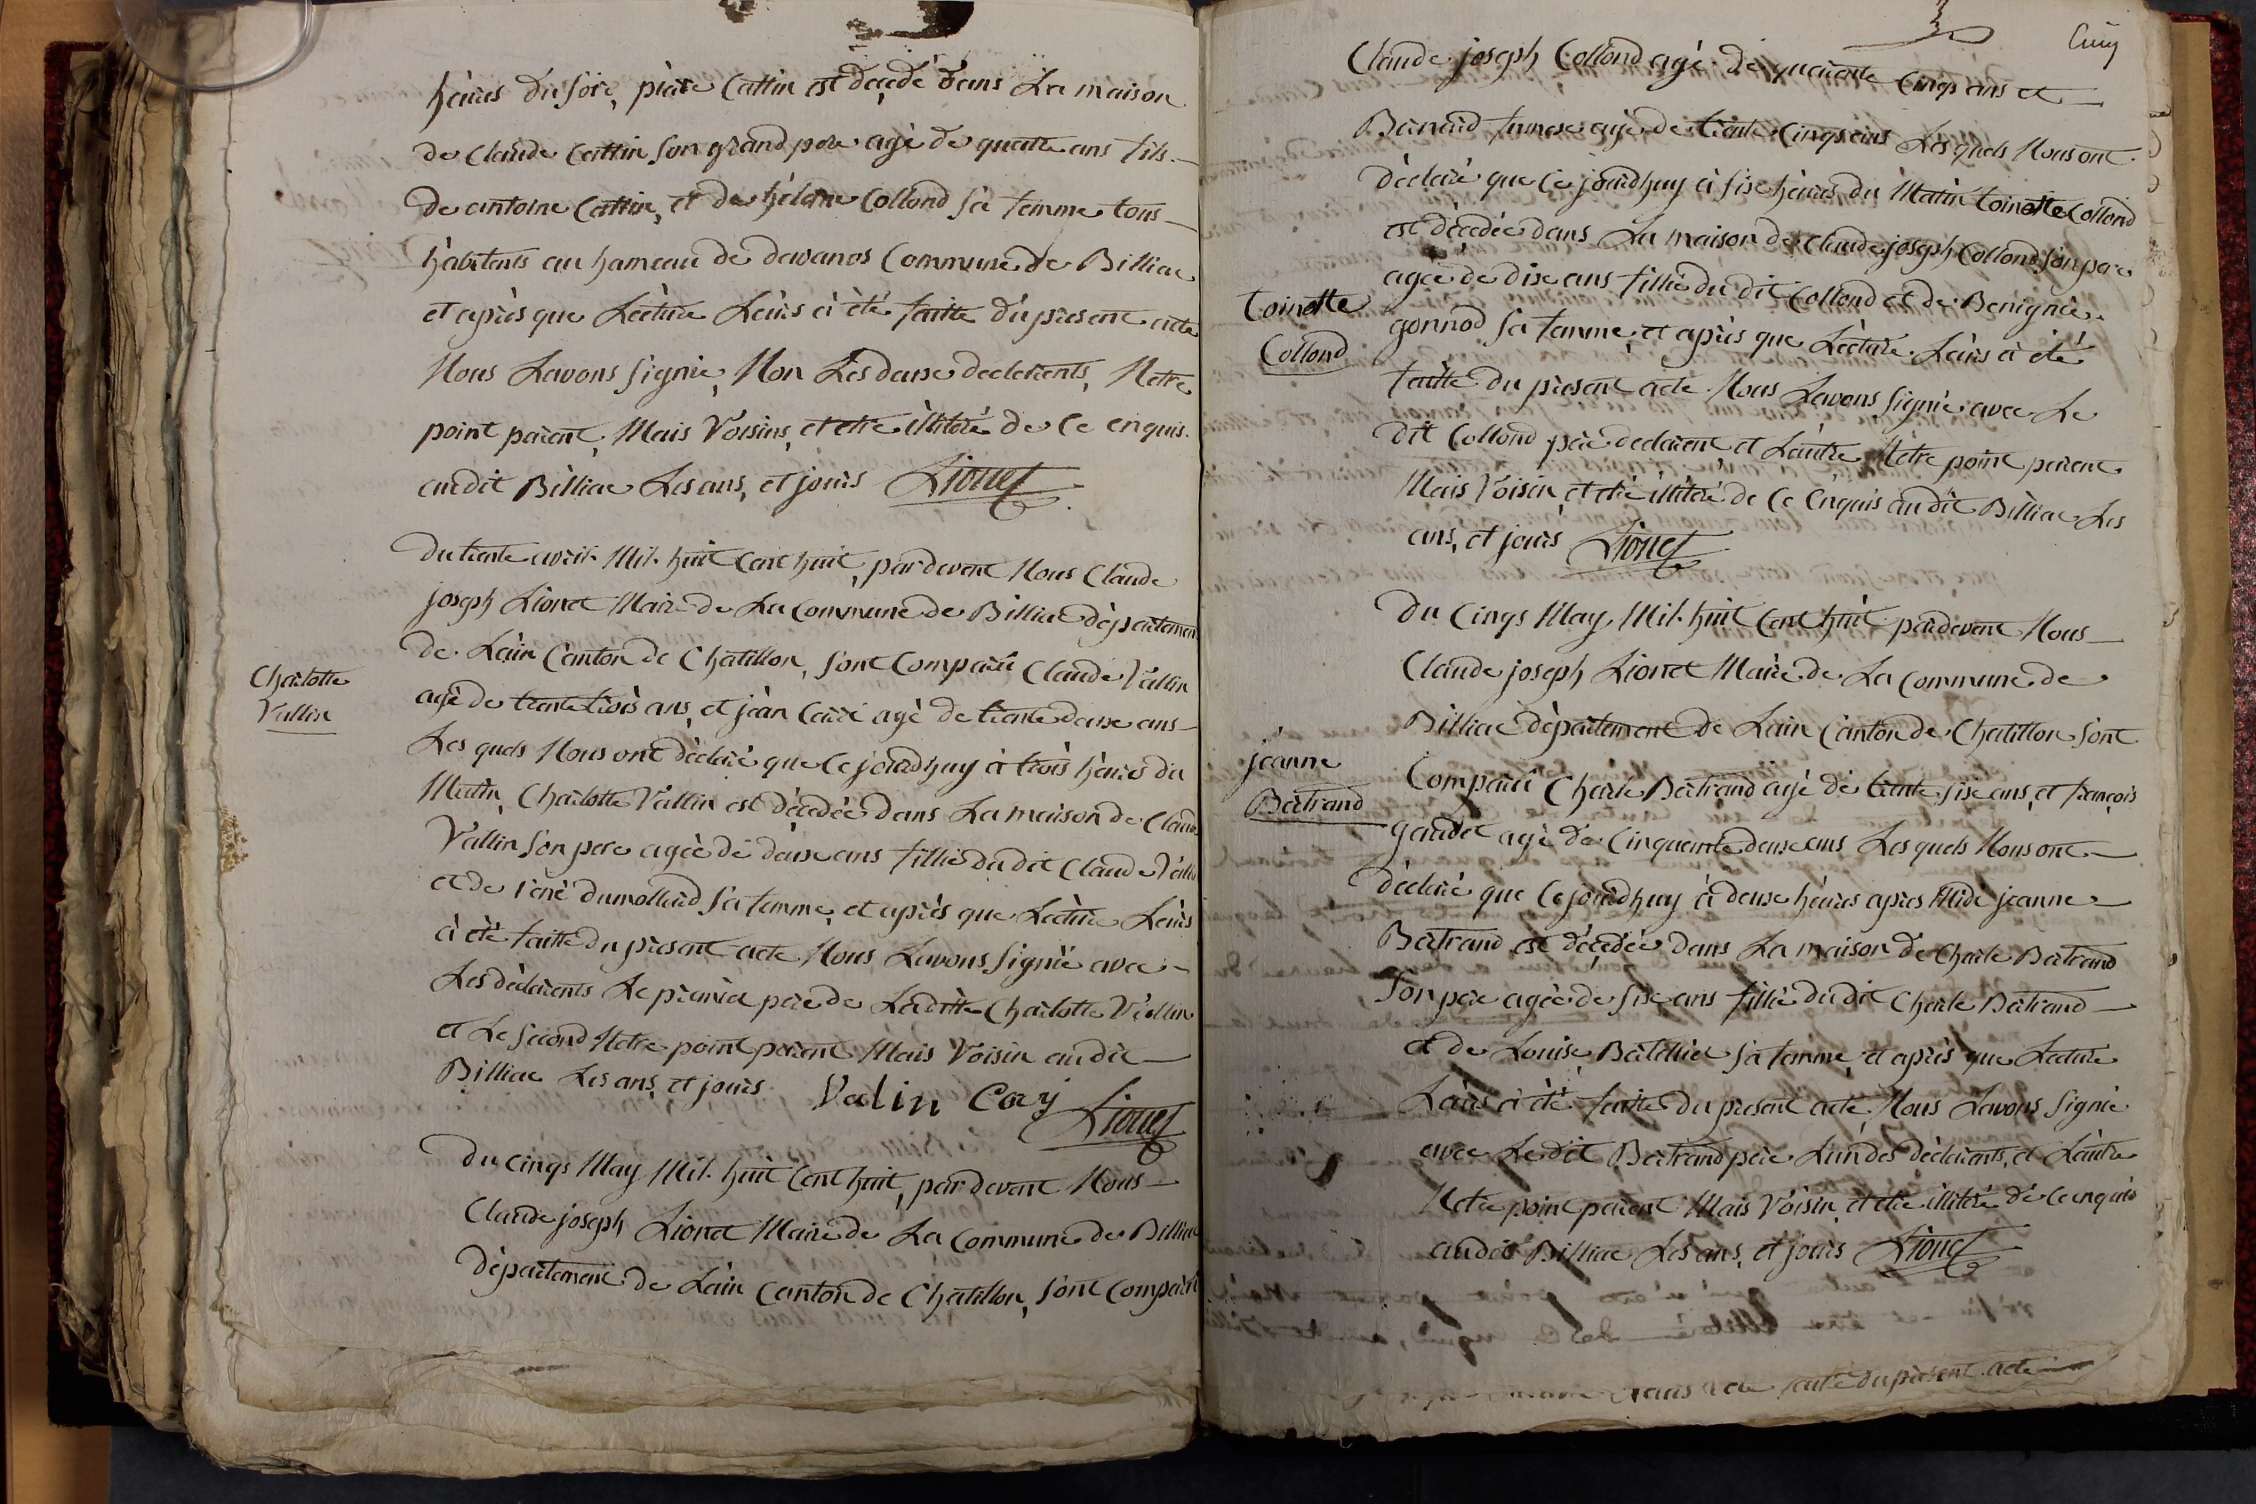 hèures du soire, piere Cattin est décedé dans La maison
de Claude Cattin son grand pere agé de quatre ans fils
de antoine Cattin, et de hélene Collond sa femme tous
habitents au hameau de devanos Commune de Billiac
et après que Lecture Leurs à èté faitte du present acte
Nous Lavons Signie, Non Les deuse declerents, Netre
point parent, Mais Voisins, et etre illiteré de Ce enquis
audit Billiac Les ans, et jours Lionet
Du trente avril Mil huit Cent huit, par devent Nous Claude
joseph Lionet Maire de La Commune de Billiac dèpartement
de Lain Canton de Chatillon, sont Comparû Claude Vallin
Charlotte
Vallin
agé de trente trois ans, et jean agè de trente deuse ans
Les quels Nous ont dèclaré que Ce jourdhuy à trois heures du
Matin, Charlotte Vallin est dècedèe dans La maison de Claude
Vallin son pere agèe de deuse ans fillie du dit Claude Vallin
et de dumollard sa femme, et après que Lecture Leurs
à èté faitte du present acte Nous Lavons Signié avec
Les dèclerents Le premier pere de Laditte Charlotte Vallin
et Le second Netre point parent Mais Voisin audit
Billiac Les ans, et jours Valin Cay
Lionet
Du cinqs May Mil huit Cent huit, par devent Nous
Claude joseph Lionet Maire de La Commune de Billiac
dèpartement de Lain Canton de Chatillon, sont Comparû
Cinq
Claude joseph Collond agé de quarente Cinqs ans et
Benaud agé de trente Cinqs ans Les quels Nous ont
dèclaré que Ce jourdhuy à sise heures du Matin toinette Collond
est dècedèe dans La maison de Claude joseph Collond son pere
agèe de dise ans fillie du dit Collond et de Benignie
toinette
Collond
gonnod sa femme, et après que Lecture Leurs à èté
faitte du present acte Nous Lavons Signie avec Le
dit Collond pere declerent et Lautre Netre point parent
Mais Voisin, et etre illiteré de Ce enquis audit Billiac Les
ans, et jours Lionet
Du Cinqs May Mil huit Cent huit pardevent Nous
Claude joseph Lionet Maire de La Commune de
Billiac dèpartement de Lain Canton de Chatillon sont
jeanne
Bertrand
Comparû Charle Bertrand agé de trente sise ans, et françois
gaudet agè de Cinquente deuse ans Les quels Nous ont
dèclaré que Ce jourdhuy à deuse hèures apres Midi jeanne
Bertrand est dècedèe dans La maison de Charle Bertrand
son pere agèe de sise ans fillie du dit Charle Bertrand
et de Louise Bertellier sa femme, et après que Lecture
Leurs à èté faitte du present acte, Nous Lavons Signie
avec Le dit Bertrand pere Lun des dèclerents, et Lautre
Netre point parent Mais Voisin, et etre illiteré de Ce enquis
audit Billiac Les ans, et jours Lionet
faitte du present acte